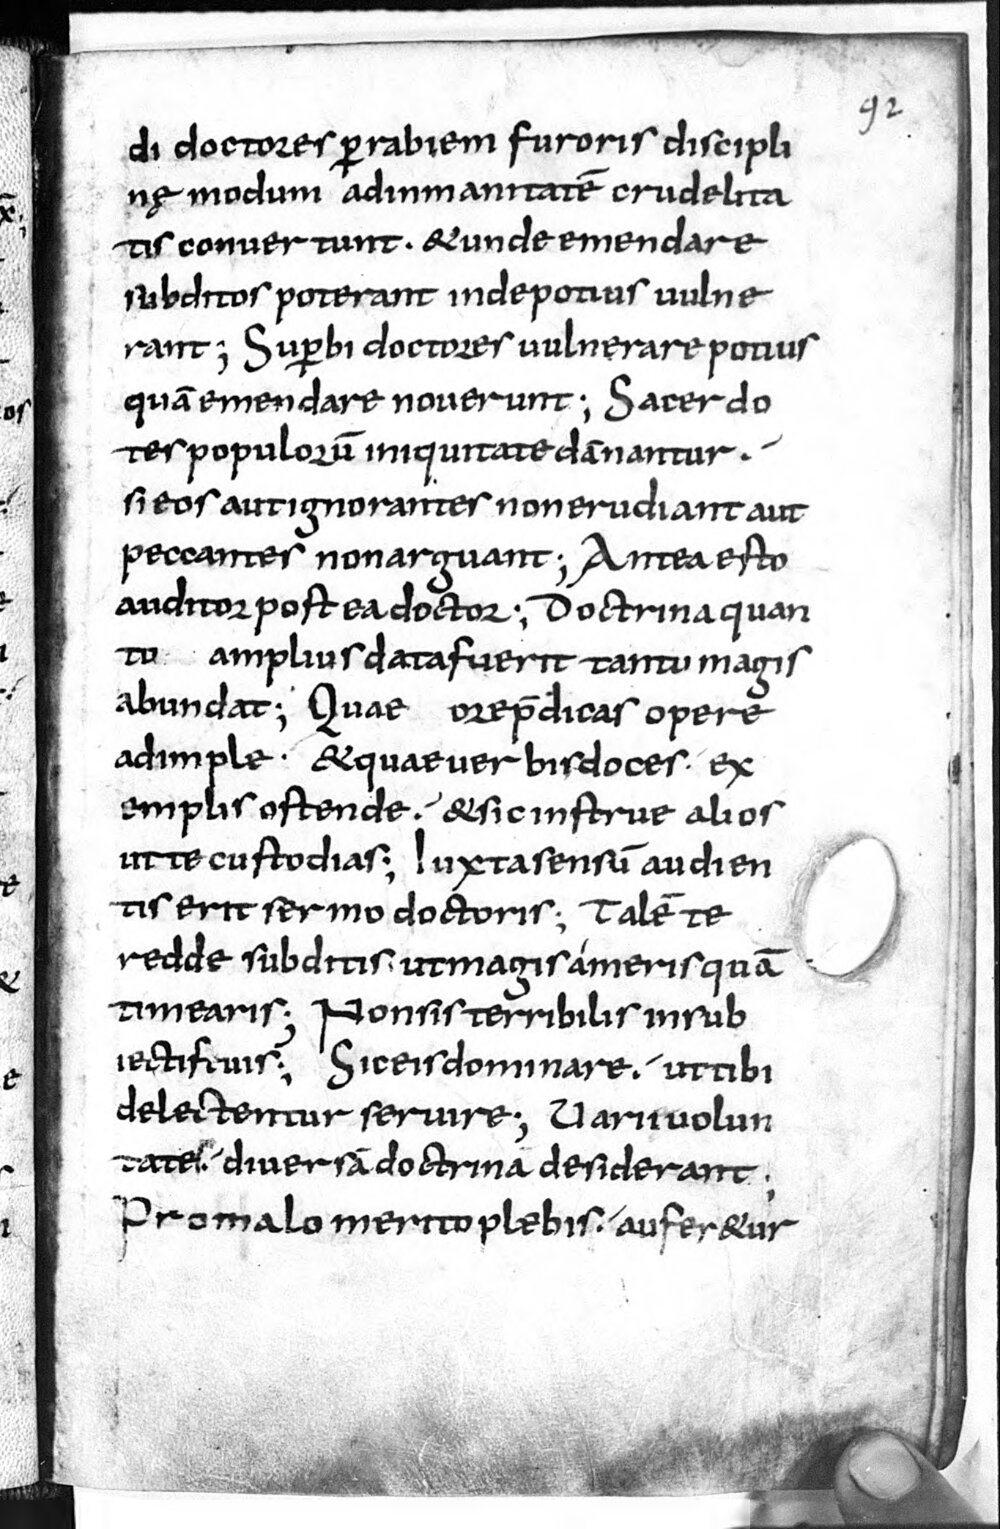 92
di doctores ꝑrabiem furoris discipli
nę modum adinmanitatē crudelita
tis conuertunt. &unde emendare
subditos poterant indepotius uulne
rant; Suꝑbi doctores uulnerare potius
quā emendare nouerunt; Sacerdo
tes populorū iniquitate dānantur.
si eos aut ignorantes non erudiant aut
peccantes non arguant; Antea esto
auditor postea doctor; Doctrina quan
to amplius data fuerit tanto magis
abundat; Quae ore p̄dicas opere
adimple. & quae uerbis doces. ex
emplis ostende. & sic instrue alios
ut te custodias; Iuxta sensū audien
tis erit sermo doctoris; Talē te
redde subditis. ut magis ameris quā
timearis; Non sis terribilis in sub
iectis tuis; Sic eis dominare. ut tibi
delectentur seruire; Uarii uolun
tates. diuersā doctrinā desiderant;
Pro malo merito plebis. aufer&ur